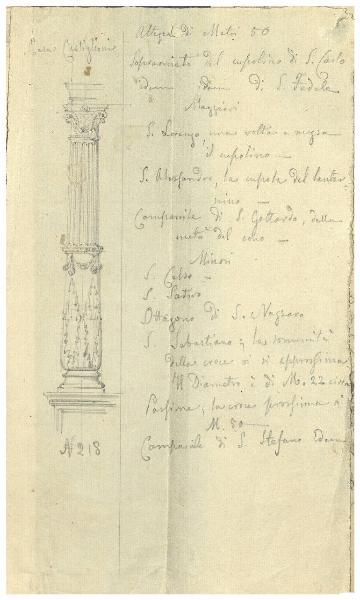 Casa Castiglioni
Altezza di Metri 50
Sopraornato del cupolino di S. Carlo
idem idem di S. Fedele
Maggiori
S. Lorenzo una volta e mezza
il cupolino —
S. Alessandro, la cupola del lanter-
nino —
Campanile di S. Gottardo, della
metà del cono —
Minori
S. Celso —
S. Satiro
Ottagono di S. Nazzaro
S. Sebastiano; la sommità
della croce vi si approssima
Il Diametro è di M. 22 circa
la croce prossima a
M. 50 —
Campanile di S. Stefano idem
N 218